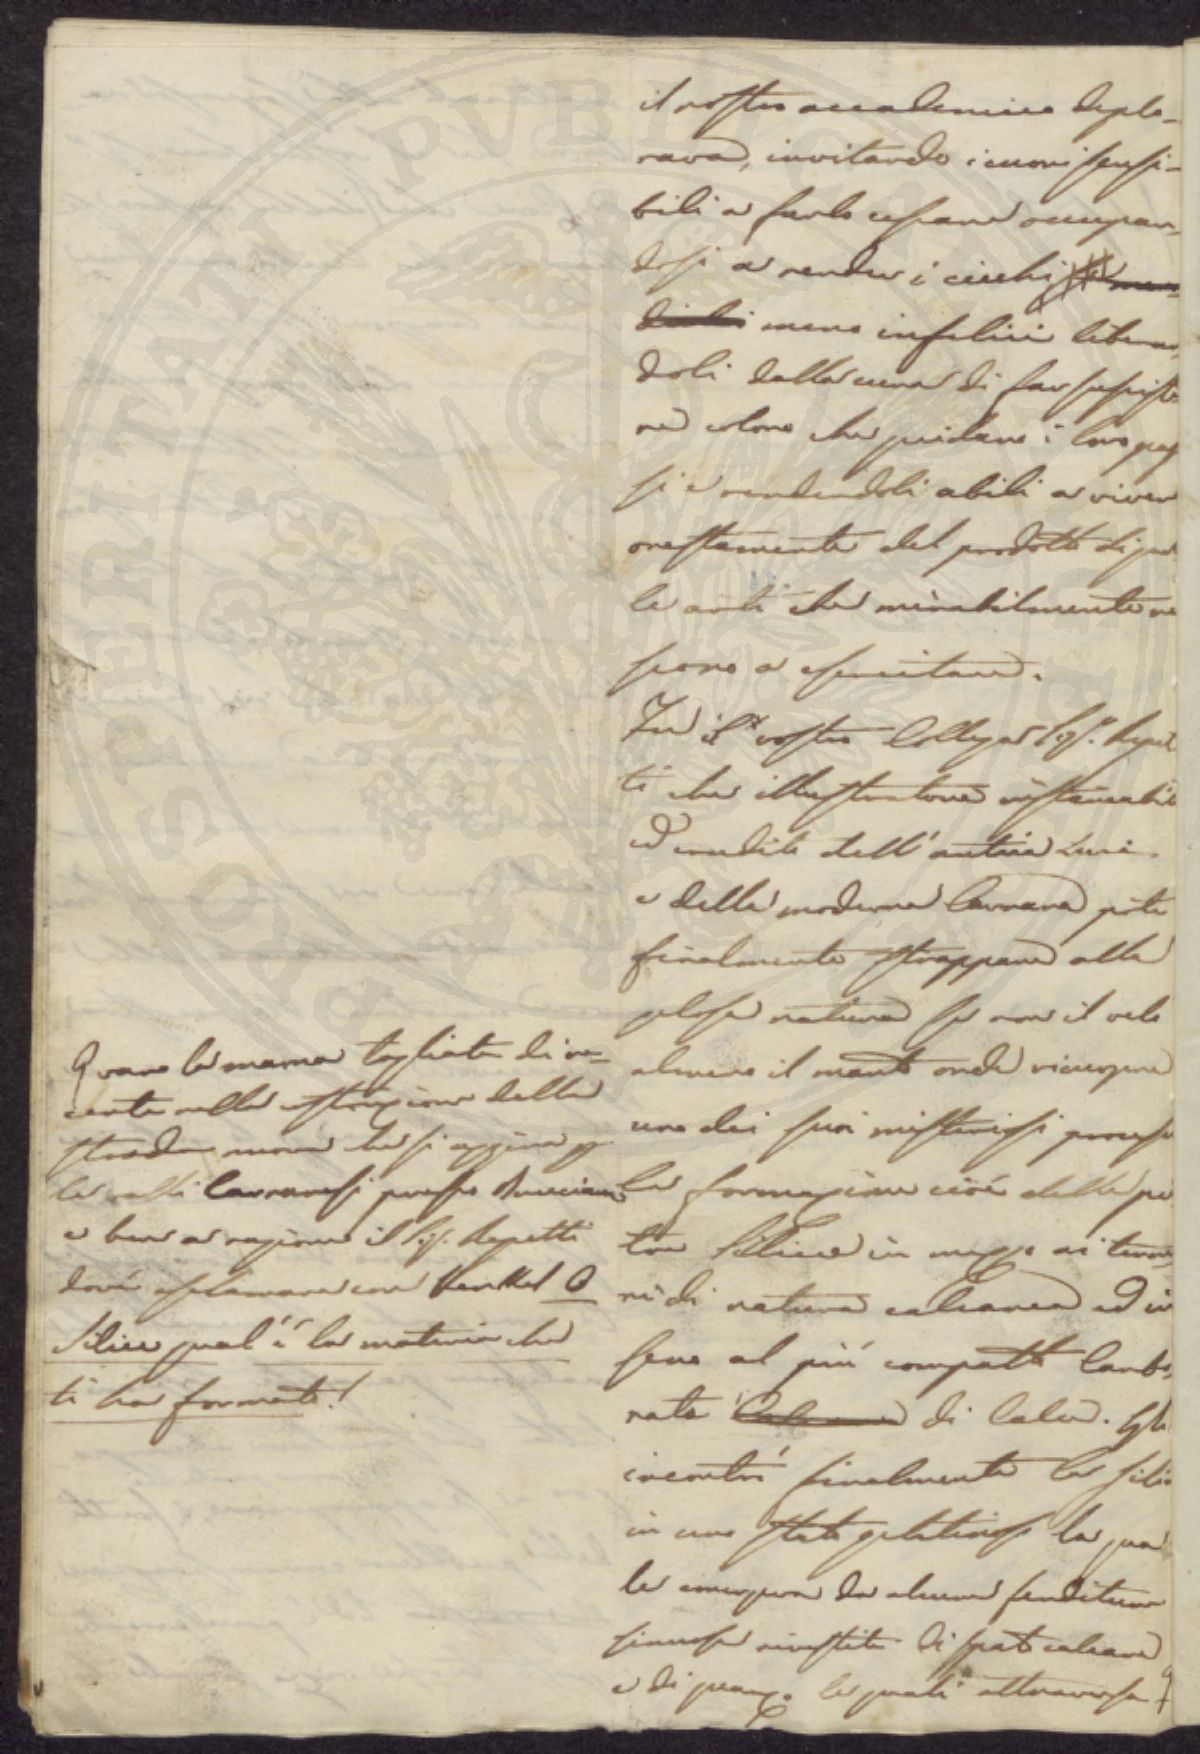 il nostro accademico deplo-
rava, invitando i cuori sensi-
bili a farlo cessare occupan-
dosi a render i ciechi
meno infelici liberan-
doli dalla cura di far sussiste-
re coloro che guidano i loro pas
si e rendendoli abili a viver
onestamente del prodotto di quel
le arti che mirabilmente
scono a esercitare.
Fu il vostro Collega Sig.r Repet
ti che illustratore instancabile
ed erudito dell'antica Luni
e della moderna Carrara potè
finalmente strappare alla
gelosa natura se non il velo
almeno il manto onde ricuopre
uno dei suoi misteriosi processi
la formazione cioè della pie
tra Silicea in mezzo ai terre
ni di natura calcarea ed in
seno al più compatto Carbo-
nato di Calce. Egli
incontrò finalmente la silice
in uno stato gelatinoso la qua
le emergeva da alcune fenditure
sinuose rivestite di spato calcare
e di quarzo le quali attraversa
vano la marna tagliata di re-
cente nella costruzione della
strada nuova che si
le valli Carraresi presso
e ben a ragione il Sig. Repetti
dové esclamare con Henkel O
Silice qual'è la materia che
ti ha formato!